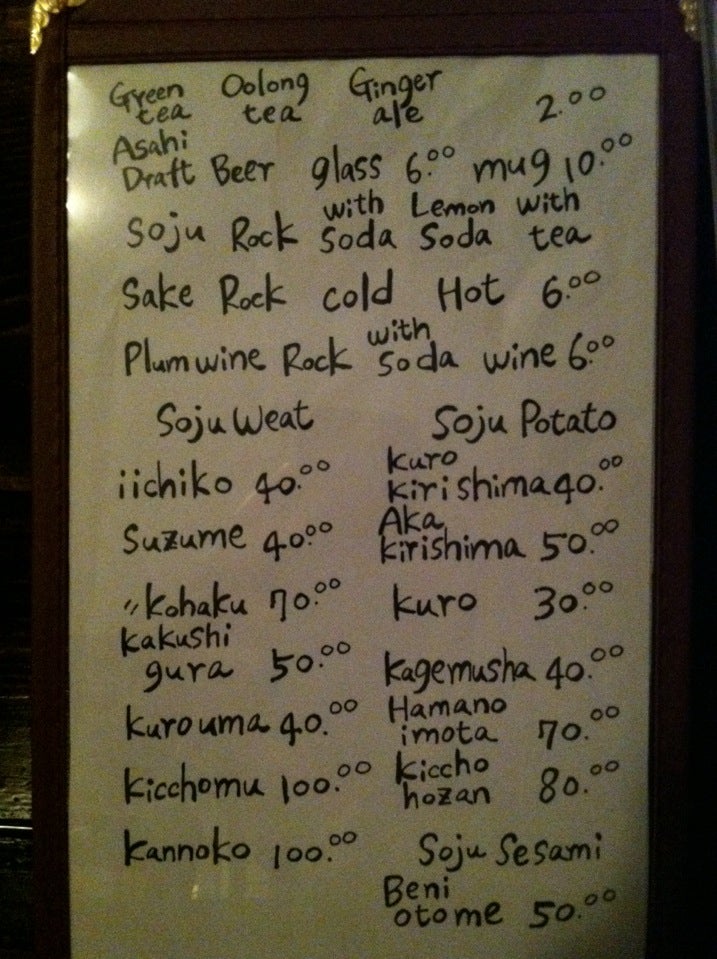 Green tea Oolong tea Ginger ale 2.00
Asahi Draft Beer glass 6.00 mug 10.00
Soju Rock with Soda Lemon Soda with tea
Sake Rock cold Hot 6.00
Plum wine Rock with Soda wine 6.00
Soju Weat Soju Potato
iichiko 40.00 kuro kirishima 40.00
Suzume 40.00 Aka kirishima 50.00
〃kohaku 70.00 kuro 30.00
kakushi gura 50.00 kagemusha 40.00
kurouma 40.00 Hamano imota 70.00
kicchomu 100.00 kiccho hozan 80.00
kannoko 100.00 Soju Sesami
Beni otome 50.00